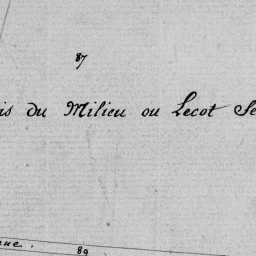 87
is du Milieu ou Lecot Se
ue.
89